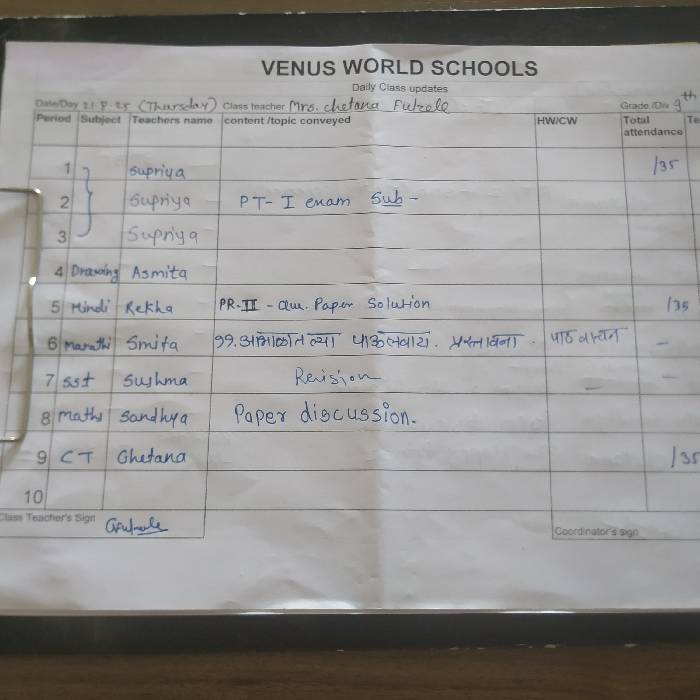 VENUS WORLD SCHOOLS
Daily Class updates
Date/Day 21.8.25 (Thursday) Class teacher Mrs. Chetana Fulzele Grade /Div 9th
Period Subject Teachers name content /topic conveyed HW/CW Total attendance Te
1 Supriya /35
2 Supriya PT-I exam Sub -
3 Supriya
4 Drawing Asmita
5 Hindi Rekha PR-II - Que. Paper Solution /35
6 Marathi Smita प्रस्तावना. पाठ वाचन -
7 SSt Sushma Revision - -
8 maths Sandhya Paper discussion.
9 CT Chetana /35
10
Class Teacher's Sign
Coordinator's sign